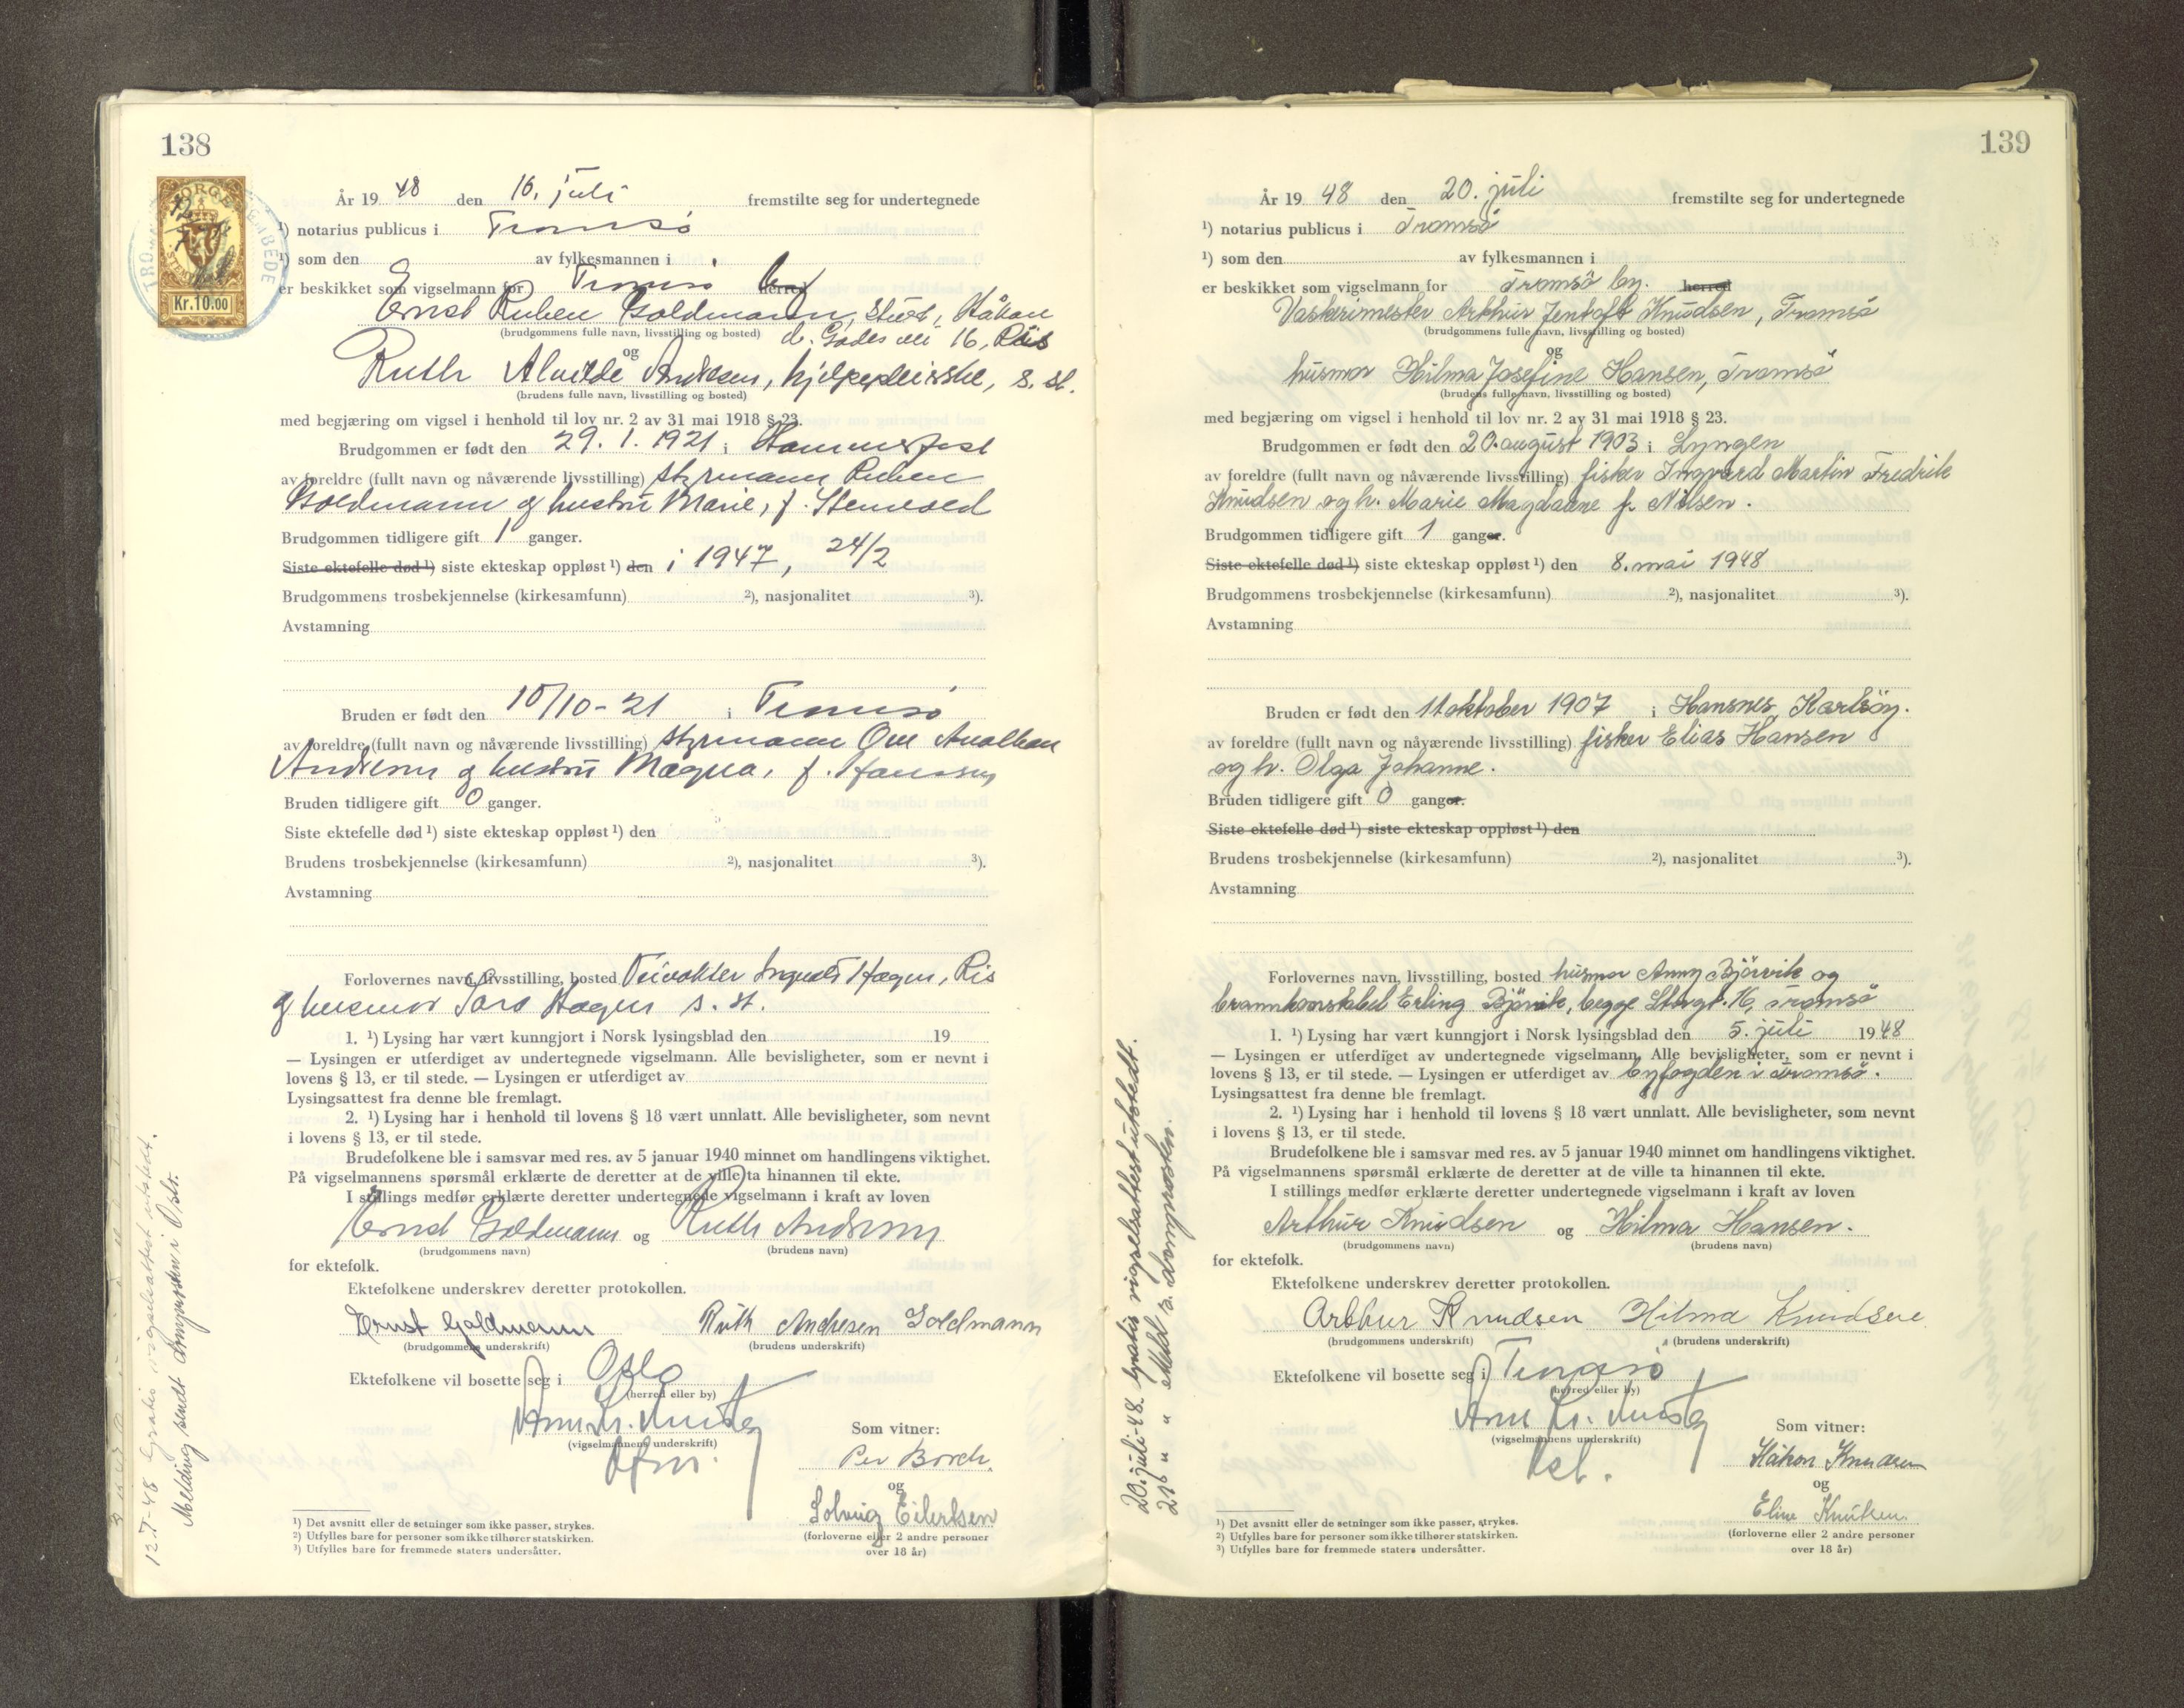 138
NORGE
STEMPEL
Kr.10.00
År 19 48 den 16. juli fremstilte seg for undertegnede
¹) notarius publicus i Tromsø
¹) som den av fylkesmannen i
er beskikket som vigselmann for Tromsø by herred
Ernst Ruben Goldmann, stud., Håkon
(brudgommens fulle navn, livsstilling og bosted) d. Godes vei 16, Ris
og
Ruth Alvilde Andresen, hjelpepleierske, s. st.
(brudens fulle navn, livsstilling og bosted)
med begjæring om vigsel i henhold til lov nr. 2 av 31 mai 1918 § 23.
Brudgommen er født den 29. 1. 1921 i Hammerfest
av foreldre (fullt navn og nåværende livsstilling) styrmann Ruben
Goldmann og hustru Marie, f.
Brudgommen tidligere gift 1 ganger.
Siste ektefelle død ¹) siste ekteskap oppløst ¹) den i 1947, 24/2
Brudgommens trosbekjennelse (kirkesamfunn) ²), nasjonalitet ³).
Avstamning
Bruden er født den 10/10-21 i Tromsø
av foreldre (fullt navn og nåværende livsstilling) styrmann Ove
Andresen og hustru Magna, f. Hanssen
Bruden tidligere gift 0 ganger.
Siste ektefelle død ¹) siste ekteskap oppløst ¹) den
Brudens trosbekjennelse (kirkesamfunn) ²), nasjonalitet ³).
Avstamning
Forlovernes navn, livsstilling, bosted Veivokter Hagen, Ris
og husmor Sara Hagen s. st.
1. ¹) Lysing har vært kunngjort i Norsk lysingsblad den 19
— Lysingen er utferdiget av undertegnede vigselmann. Alle bevisligheter, som er nevnt i
lovens § 13, er til stede. — Lysingen er utferdiget av
Lysingsattest fra denne ble fremlagt.
2. ¹) Lysing har i henhold til lovens § 18 vært unnlatt. Alle bevisligheter, som nevnt
i lovens § 13, er til stede.
Brudefolkene ble i samsvar med res. av 5 januar 1940 minnet om handlingens viktighet.
På vigselmannens spørsmål erklærte de deretter at de ville ta hinannen til ekte.
I stillings medfør erklærte deretter undertegnede vigselmann i kraft av loven
Ernst Goldmann og Ruth Andresen
(brudgommens navn) (brudens navn)
for ektefolk.
Ektefolkene underskrev deretter protokollen.
Ernst Goldmann Ruth Andresen Goldmann
(brudgommens underskrift) (brudens underskrift)
Ektefolkene vil bosette seg i Oslo
(herred eller by)
(vigselmannens underskrift)
Som vitner:
Per Borch.
og
Solveig Eilertsen
(forloverne eller 2 andre personer
over 18 år)
¹) Det avsnitt eller de setninger som ikke passer, strykes.
²) Utfylles bare for personer som ikke tilhører statskirken.
³) Utfylles bare for fremmede staters undersåtter.
12.7-48 Gratis vigselsattest utstedt.
Melding sendt domprosten i Oslo.
139
År 19 48 den 20. juli fremstilte seg for undertegnede
¹) notarius publicus i Tromsö
¹) som den av fylkesmannen i
er beskikket som vigselmann for Tromsö by. herred
Vaskerimester Arthur Jentoft Knudsen, Tromsö
(brudgommens fulle navn, livsstilling og bosted)
og
husmor Hilma Josefine Hansen, Tromsö
(brudens fulle navn, livsstilling og bosted)
med begjæring om vigsel i henhold til lov nr. 2 av 31 mai 1918 § 23.
Brudgommen er født den 20. august 1903 i Lyngen
av foreldre (fullt navn og nåværende livsstilling) fisker Ingvard Martin Fredrik
Knudsen og h. Marie Magdalene f. Nilsen.
Brudgommen tidligere gift 1 ganger.
Siste ektefelle død ¹) siste ekteskap oppløst ¹) den 8. mai 1948
Brudgommens trosbekjennelse (kirkesamfunn) ²), nasjonalitet ³).
Avstamning
Bruden er født den 11 oktober 1907 i Hansnes, Karlsöy.
av foreldre (fullt navn og nåværende livsstilling) fisker Elias Hansen
og h. Olga Johanne.
Bruden tidligere gift 0 ganger.
Siste ektefelle død ¹) siste ekteskap oppløst ¹) den
Brudens trosbekjennelse (kirkesamfunn) ²), nasjonalitet ³).
Avstamning
Forlovernes navn, livsstilling, bosted husmor Anny Björvik og
brannkonstabel Erling Björvik, begge Storgt. 16, Tromsö
1. ¹) Lysing har vært kunngjort i Norsk lysingsblad den 5. juli 1948
— Lysingen er utferdiget av undertegnede vigselmann. Alle bevisligheter, som er nevnt i
lovens § 13, er til stede. — Lysingen er utferdiget av byfogden i Tromsö.
Lysingsattest fra denne ble fremlagt.
2. ¹) Lysing har i henhold til lovens § 18 vært unnlatt. Alle bevisligheter, som nevnt
i lovens § 13, er til stede.
Brudefolkene ble i samsvar med res. av 5 januar 1940 minnet om handlingens viktighet.
På vigselmannens spørsmål erklærte de deretter at de ville ta hinannen til ekte.
I stillings medfør erklærte deretter undertegnede vigselmann i kraft av loven
Arthur Knudsen og Hilma Hansen.
(brudgommens navn) (brudens navn)
for ektefolk.
Ektefolkene underskrev deretter protokollen.
Arthur Knudsen Hilma Knudsen
(brudgommens underskrift) (brudens underskrift)
Ektefolkene vil bosette seg i Tromsø
(herred eller by)
(vigselmannens underskrift)
Som vitner:
Håkon Knudsen
og
Eline Knutsen
(forloverne eller 2 andre personer
over 18 år)
¹) Det avsnitt eller de setninger som ikke passer, strykes.
²) Utfylles bare for personer som ikke tilhører statskirken.
³) Utfylles bare for fremmede staters undersåtter.
20. juli-48. Gratis vigselsattest utstedt.
21s " " Meld. s. domprosten.